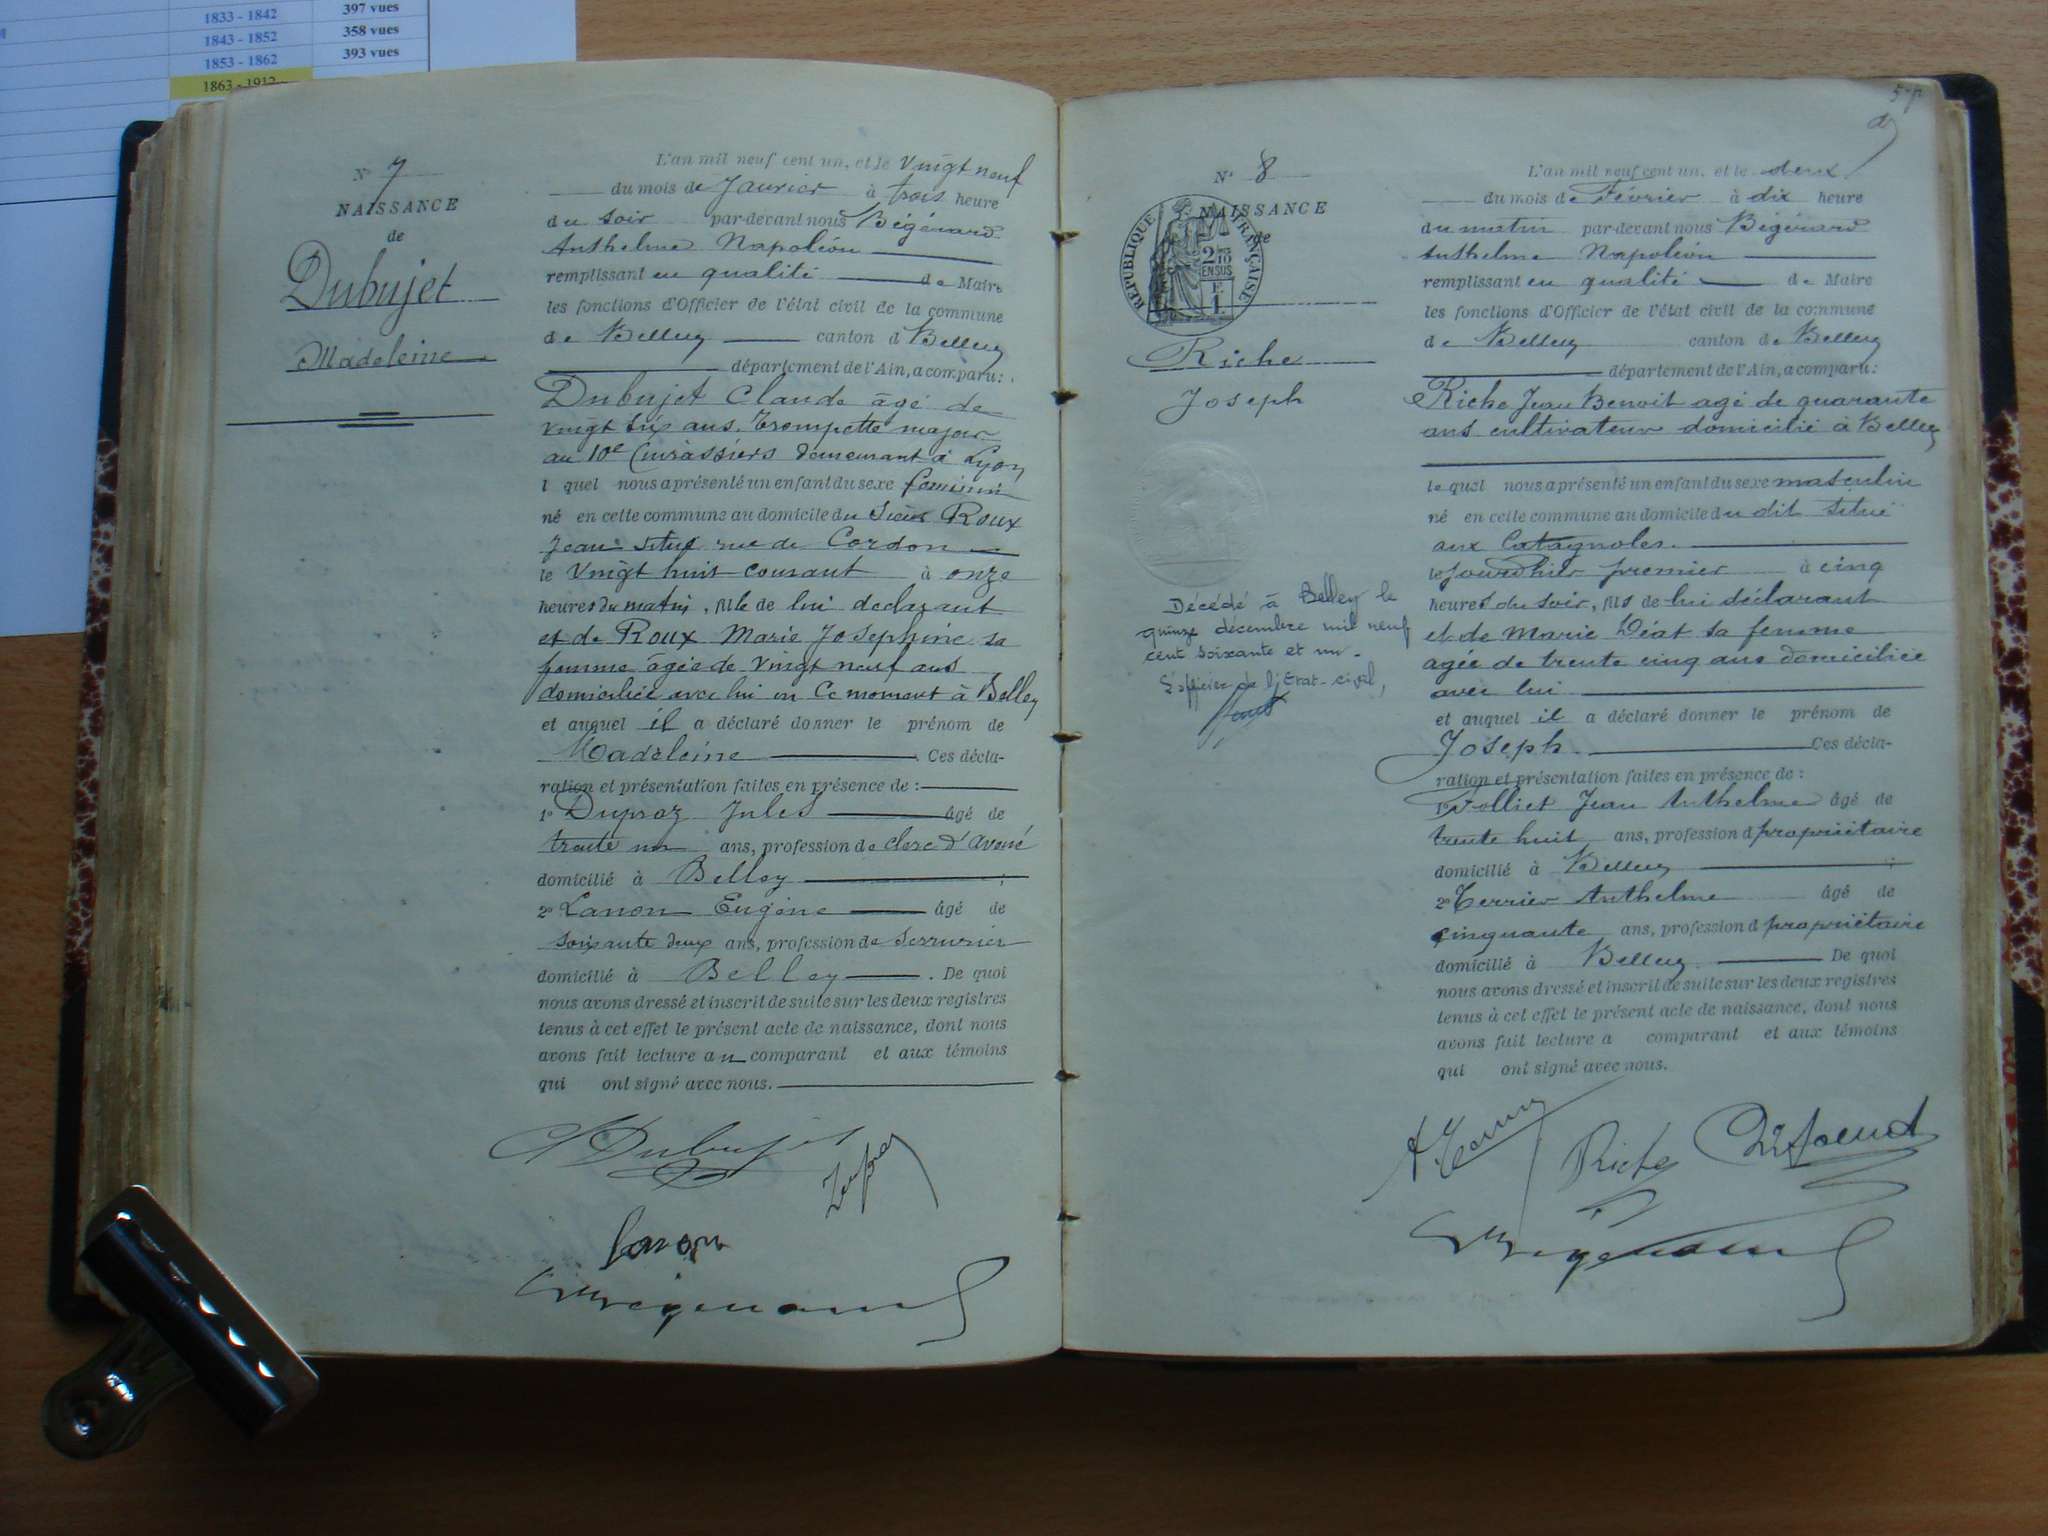 1833 - 1842 397 vues
1843 - 1852 358 vues
1853 - 1862 393 vues
1863 - 1912
N° 7
NAISSANCE
de
Dubujet
Madeleine
L'an mil neuf cent un, et le vingt neuf
du mois de Janvier à trois heure
du soir par-devant nous Bégérard
Anthelme Napoléon
remplissant en qualité de Maire
les fonctions d'Officier de l'état civil de la commune
de Belley canton d Belley
département de l'Ain, a comparu :
Dubujet Claude âgé de
vingt six ans. Trompette major
au 10e Cuirassiers demeurant à Lyon
l quel nous a présenté un enfant du sexe feminin
né en cette commune au domicile du Sieur Roux
Jean situé rue de Cordon
le vingt huit courant à onze
heures du matin, fille de lui declarant
et de Roux Marie Josephine sa
femme âgée de vingt neuf ans
domiciliée avec lui en ce moment à Belley
et auquel il a déclaré donner le prénom de
Madeleine. Ces décla-
ration et présentation faites en présence de :
1° Dupraz Jules âgé de
trente un ans, profession de clerc d'avoué
domicilié à Belley ;
2° Lanon Eugène âgé de
soixante deux ans, profession de serrurier
domicilié à Belley. De quoi
nous avons dressé et inscrit de suite sur les deux registres
tenus à cet effet le présent acte de naissance, dont nous
avons fait lecture au comparant et aux témoins
qui ont signé avec nous.
Dubujet
Lanon
N° 8
NAISSANCE
de
RÉPUBLIQUE FRANÇAISE
2/10
EN SUS
F.
1.
Riche
Joseph
Décédé à Belley le
quinze décembre mil neuf
cent soixante et un.
L'officier de l'Etat-civil,
L'an mil neuf cent un, et le deux
du mois de Février à dix heure
du matin par-devant nous Bégérard
Anthelme Napoléon
remplissant en qualité de Maire
les fonctions d'Officier de l'état civil de la commune
de Belley canton de Belley
département de l'Ain, a comparu :
Riche Jean Benoit agé de quarante
ans cultivateur domicilié à Belley
le quel nous a présenté un enfant du sexe masculin
né en cette commune au domicile du dit situé
aux Catagnoles.
le jourd'hier premier à cinq
heures du soir, fils de lui déclarant
et de Marie Déat sa femme
agée de trente cinq ans domiciliée
avec lui
et auquel il a déclaré donner le prénom de
Joseph. Ces décla-
ration et présentation faites en présence de :
1° Folliet Jean Anthelme âgé de
trente huit ans, profession d propriétaire
domicilié à Belley ;
2° Terrier Anthelme âgé de
cinquante ans, profession d propriétaire
domicilié à Belley. De quoi
nous avons dressé et inscrit de suite sur les deux registres
tenus à cet effet le présent acte de naissance, dont nous
avons fait lecture a comparant et aux témoins
qui ont signé avec nous.
Riche